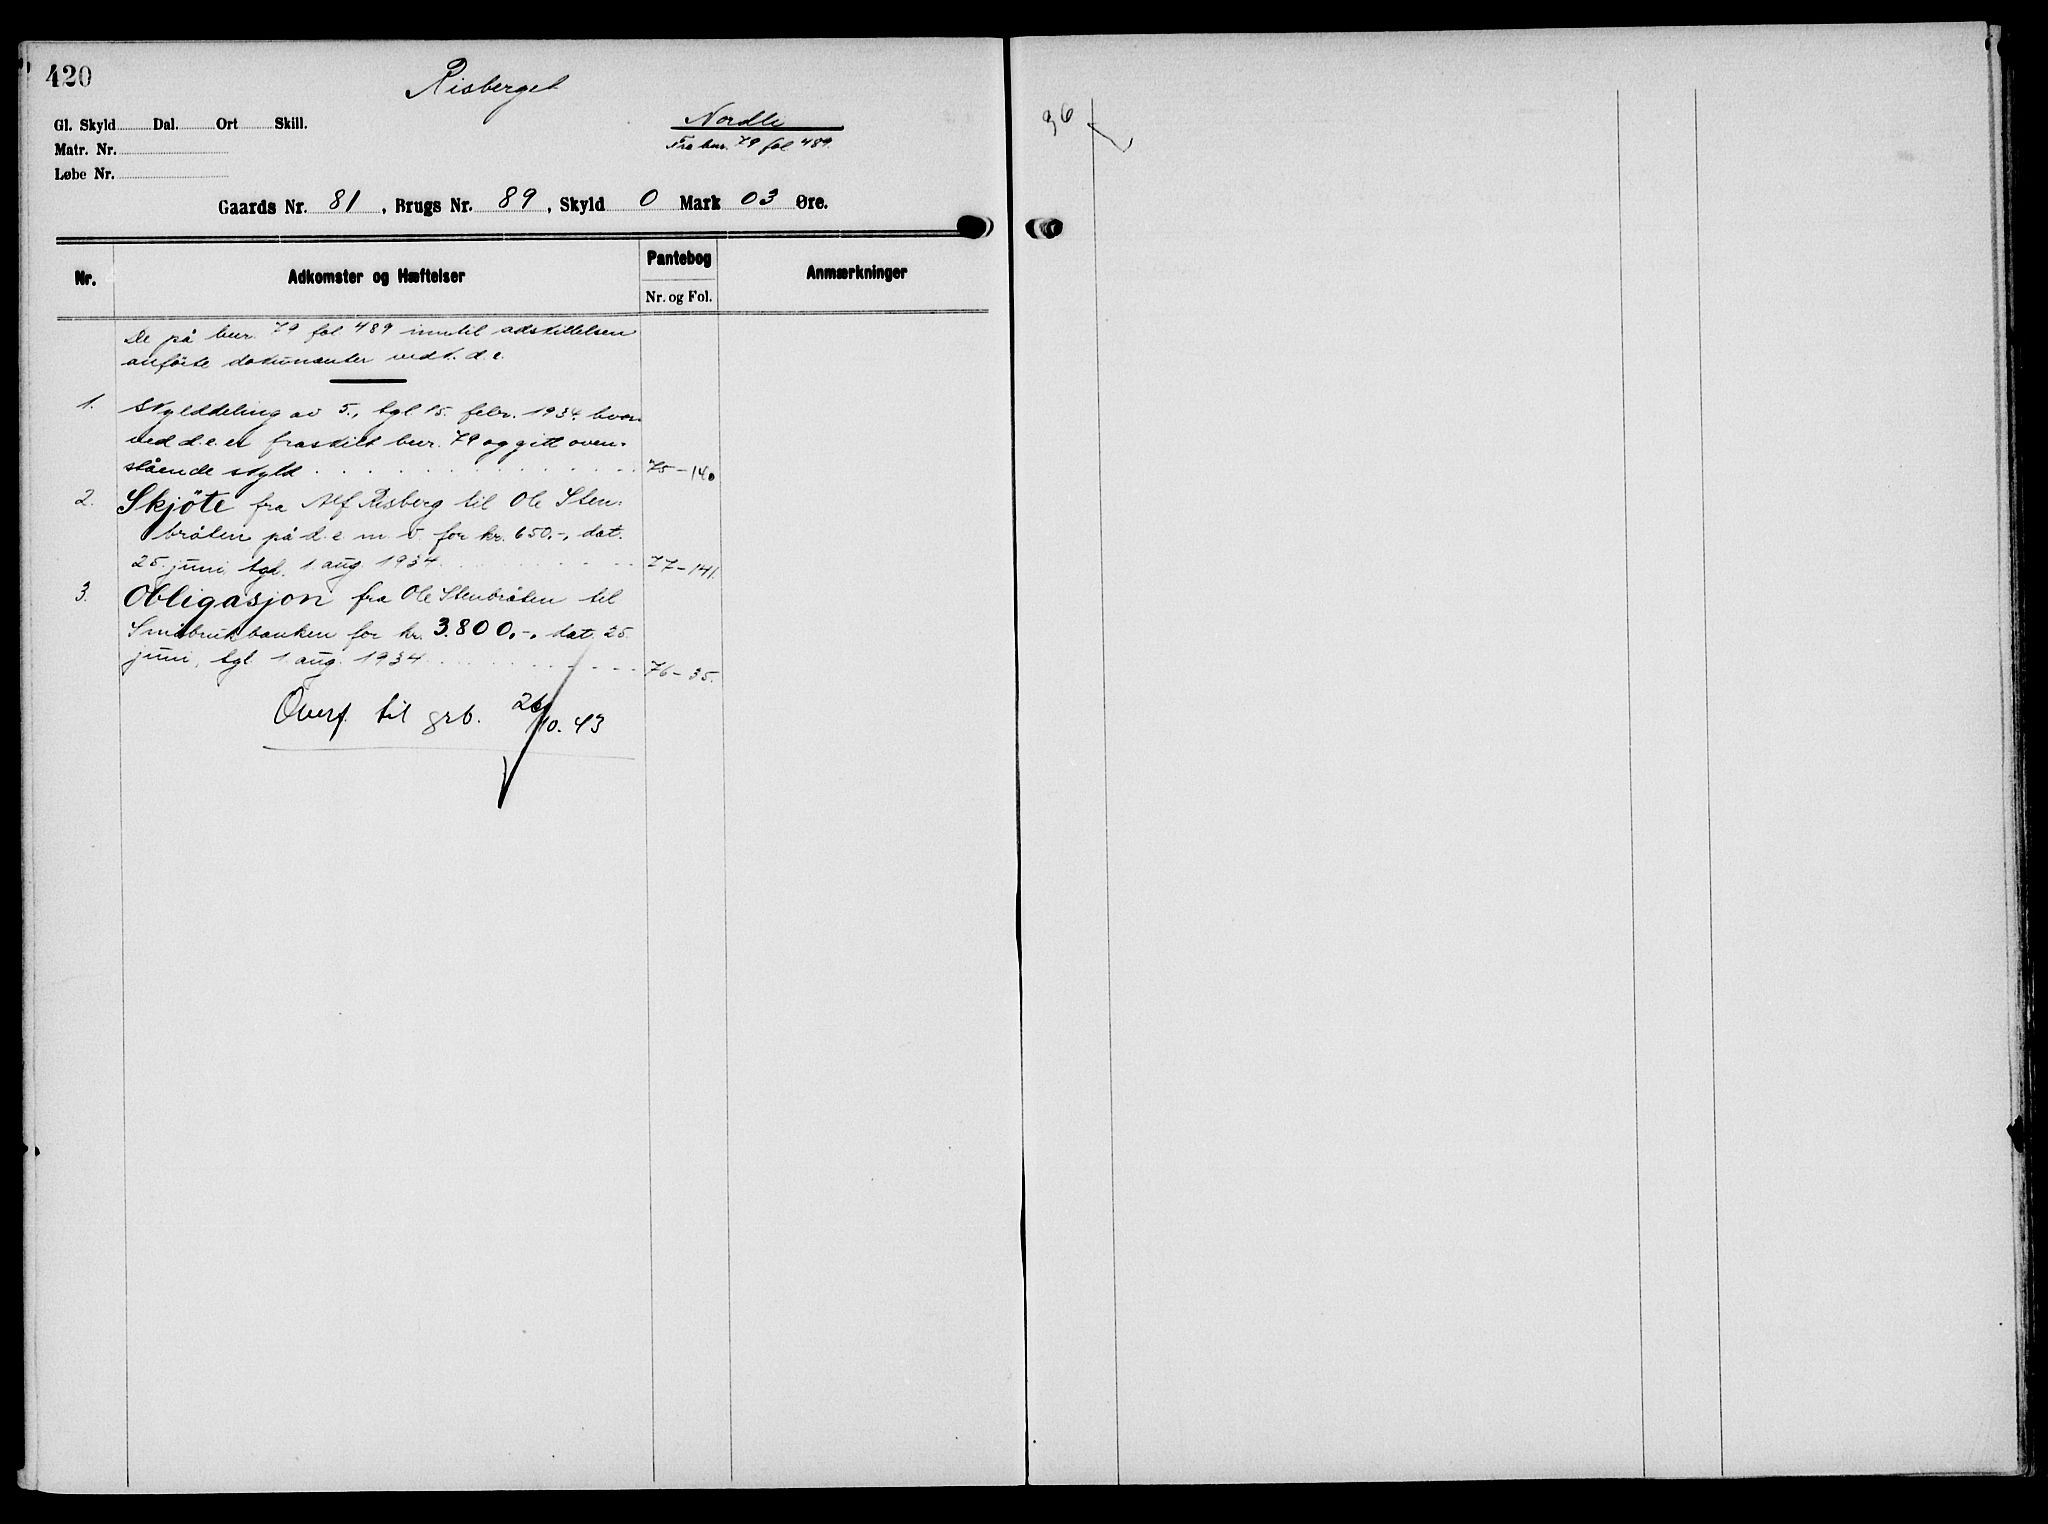 420
Risberget
Gl. Skyld Dal. Ort Skill.
Nordli
Matr. Nr.
Fra bnr. 79 fol 489.
Løbe Nr.
Gaards Nr. 81, Brugs Nr. 89, Skyld 0 Mark 03 Øre.
Nr. Adkomster og Hæftelser Pantebog Anmærkninger
Nr. og Fol.
De på bnr. 79 fol 489 inntil adskillelsen
anförte dokumenter vedk. d. e.
1. Skylddeling av 5., tgl 15. febr. 1934 hvor-
ved d. e. er fraskilt bnr. 79 og gitt oven-
stående skyld 75-140
2. Skjöte fra Alf Risberg til Ole Sten-
bråten på d. e. m. v. for kr. 650.-, dat.
25. juni, tgl. 1 aug. 1934 77-141.
3. Obligasjon fra Ole Stenbråten til
Småbrukbanken for kr. 3.800.-, dat. 25.
juni, tgl. 1 aug. 1934 76-35.
Overf. til grb. 26/10. 43
96